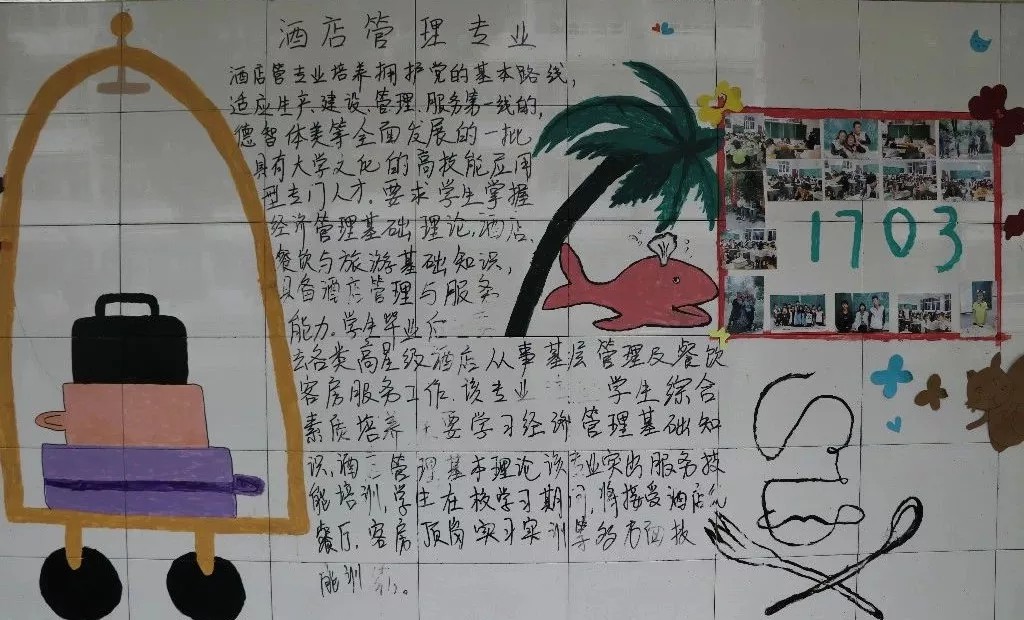 酒店管理专业
酒店管专业培养拥护党的基本路线，
适应生产、建设、管理、服务第一线的，
德智体美等全面发展的一批
具有大学文化的高技能应用
型专门人才，要求学生掌握
经济管理基础理论，酒店、
餐饮与旅游基础知识，
具备酒店管理与服务
能力。学生毕业后
去各类高星级酒店从事基层管理及餐饮
客房服务工作。该专业 学生综合
素质培养 要学习经济管理基础知
识，酒 管理基本理论，该专业突出服务技
能培训，学生在校学习期间，将接受酒店
餐厅、客房顶岗实习实训等多方面技
能训 。
1703